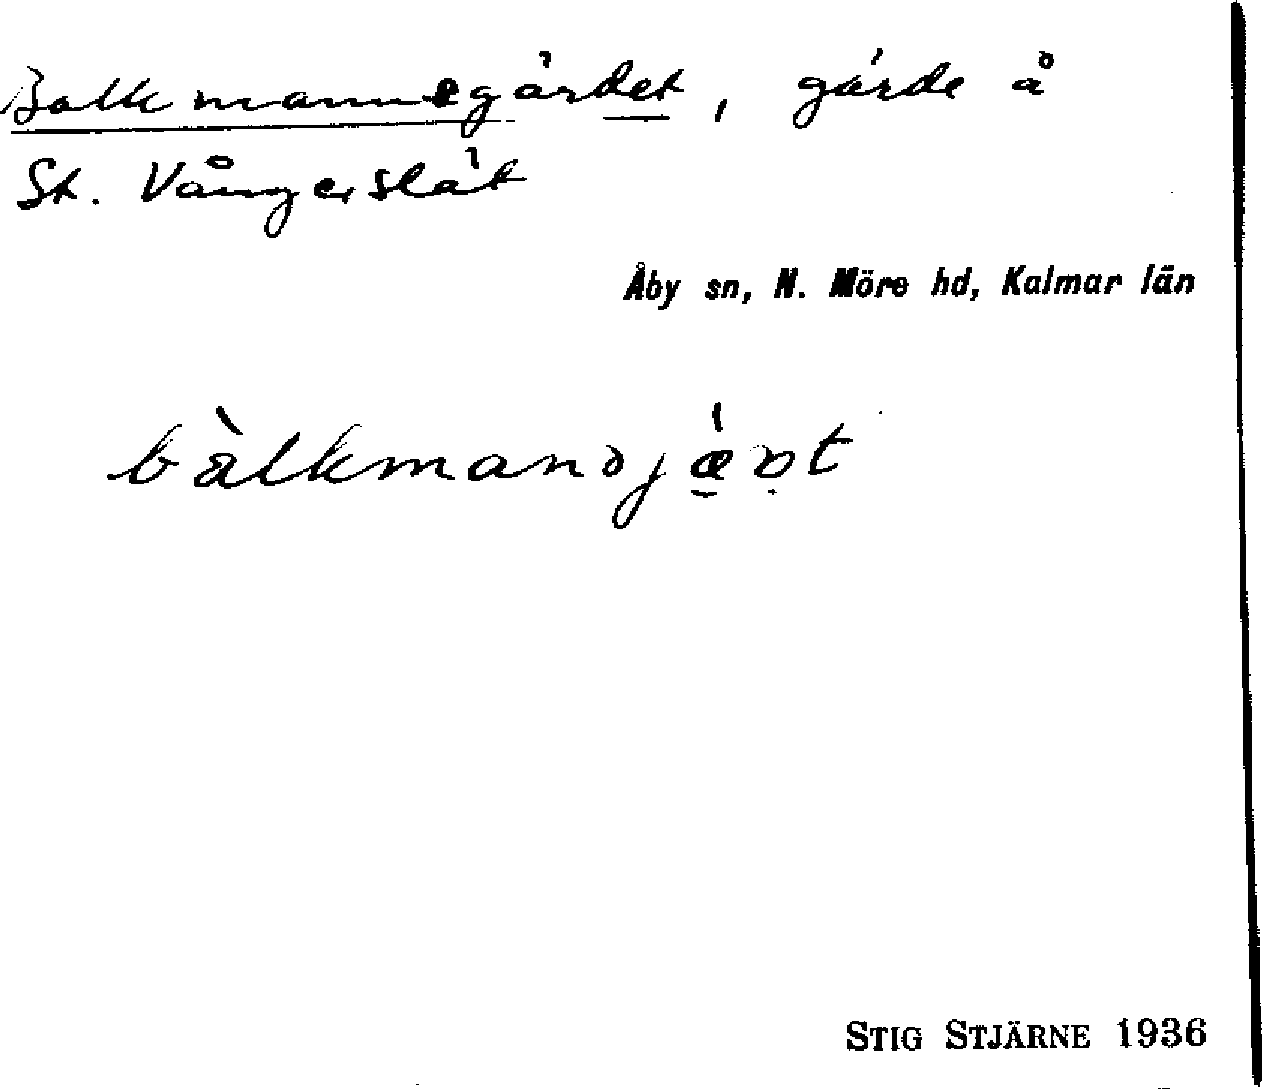 Balkmannegärdet, gärde å
St. Vångerslät
Åby sn, N. Möre hd, Kalmar län
STIG STJÄRNE 1936